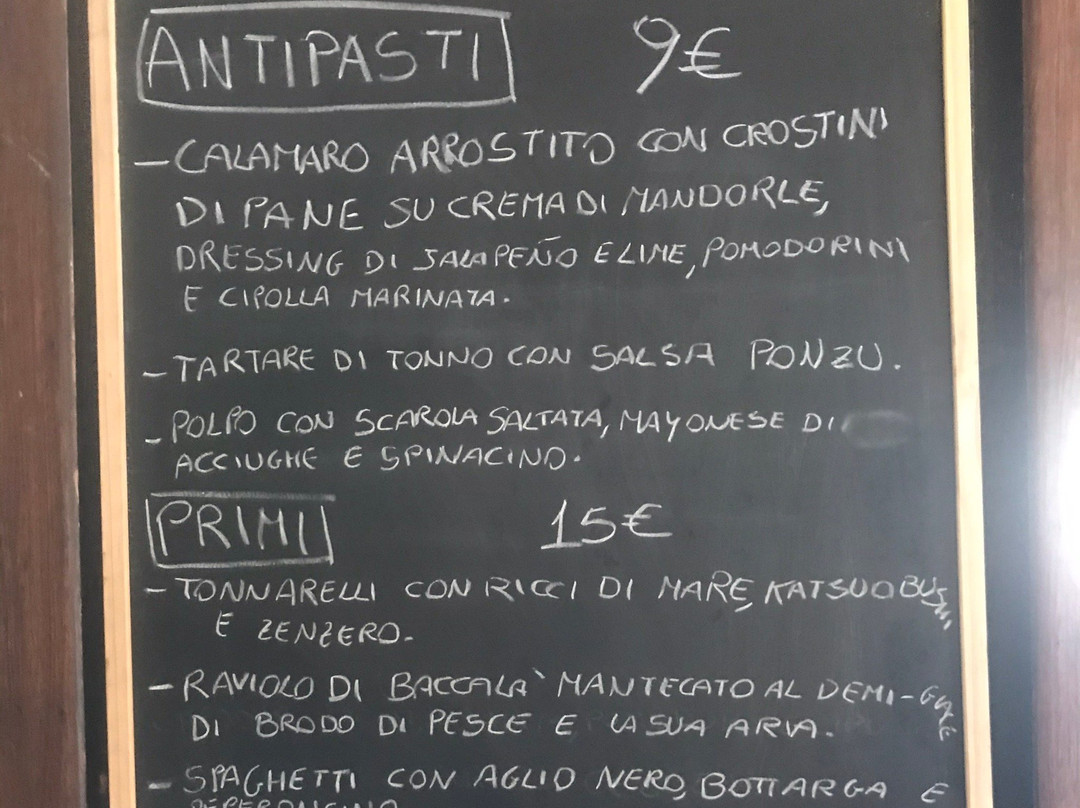 ANTIPASTI 9€
- CALAMARO ARROSTITO CON CROSTINI
DI PANE SU CREMA DI MANDORLE,
DRESSING DI JALAPEÑO E LIME, POMODORINI
E CIPOLLA MARINATA.
- TARTARE DI TONNO CON SALSA PONZU.
- POLPO CON SCAROLA SALTATA, MAYONESE DI
ACCIUGHE E SPINACINO.
PRIMI 15€
- TONNARELLI CON RICCI DI MARE, KATSUOBUSHI
E ZENZERO.
- RAVIOLO DI BACCALA` MANTECATO AL DEMI-GLACE
DI BRODO DI PESCE E LA SUA ARIA.
- SPAGHETTI CON AGLIO NERO, BOTTARGA E
PEPERONCINO